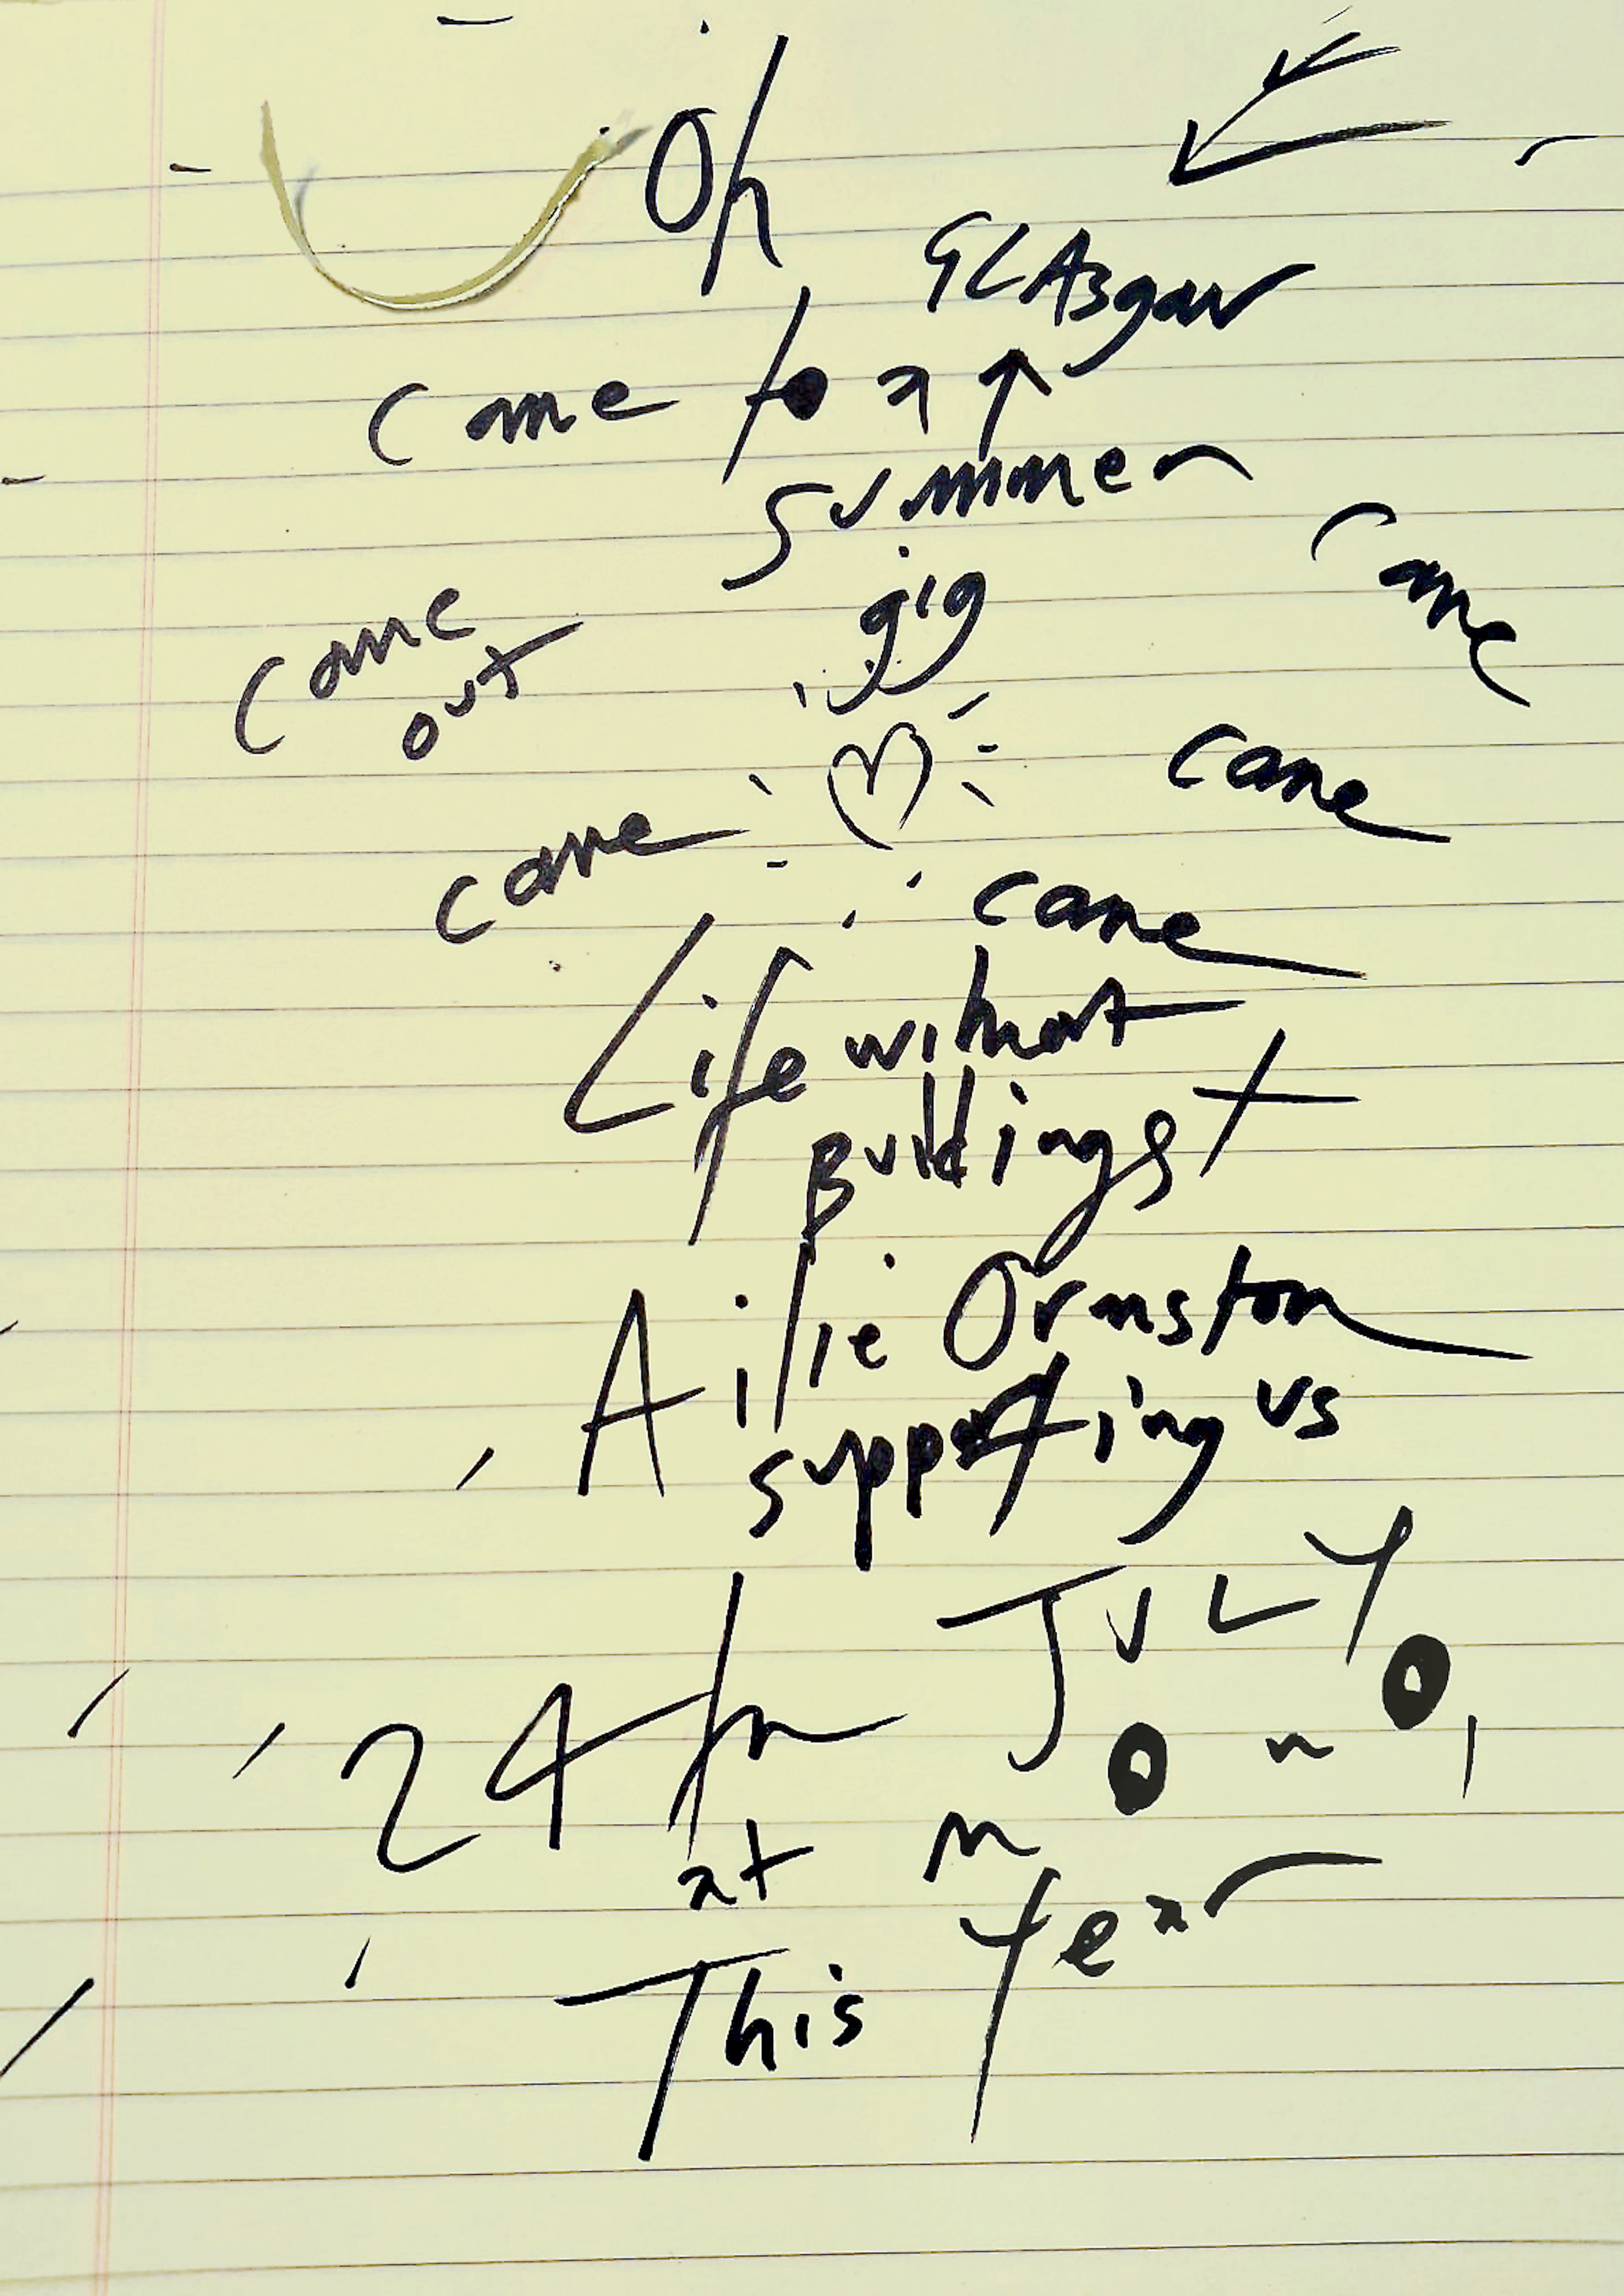 Oh
GLAsgow
come to a
summer
gig
come
come
out
come
come
come
Life without
Buildings +
Ailie Ormston
supporting us
24th JULY
at mono,
This Year